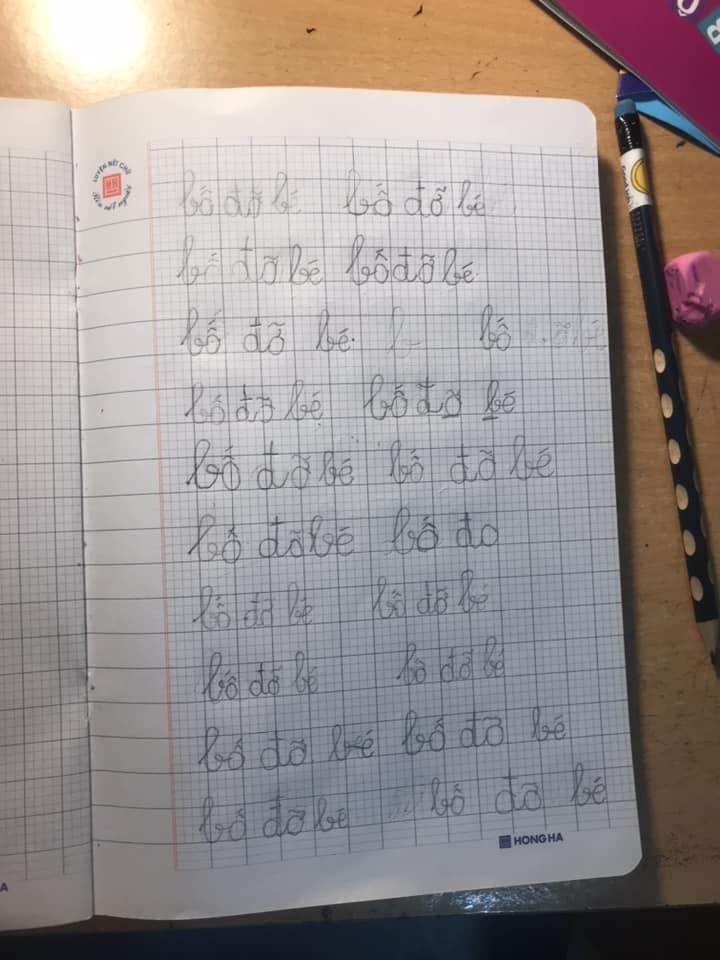 LUYỆN NÉT CHỮ
bố đỡ bé bố đỡ bé
bố đỡ bé bố đỡ bé
bố đỡ bé bố
bố đỡ bé bố đỡ bé
bố đỡ bé bố đỡ bé
bố đỡ bé bố đo
bố đỡ bé bố đỡ bé
bố đỡ bé bố đỡ bé
bố đỡ bé bố đỡ bé
bố đỡ bé bố đỡ bé
HONG HA